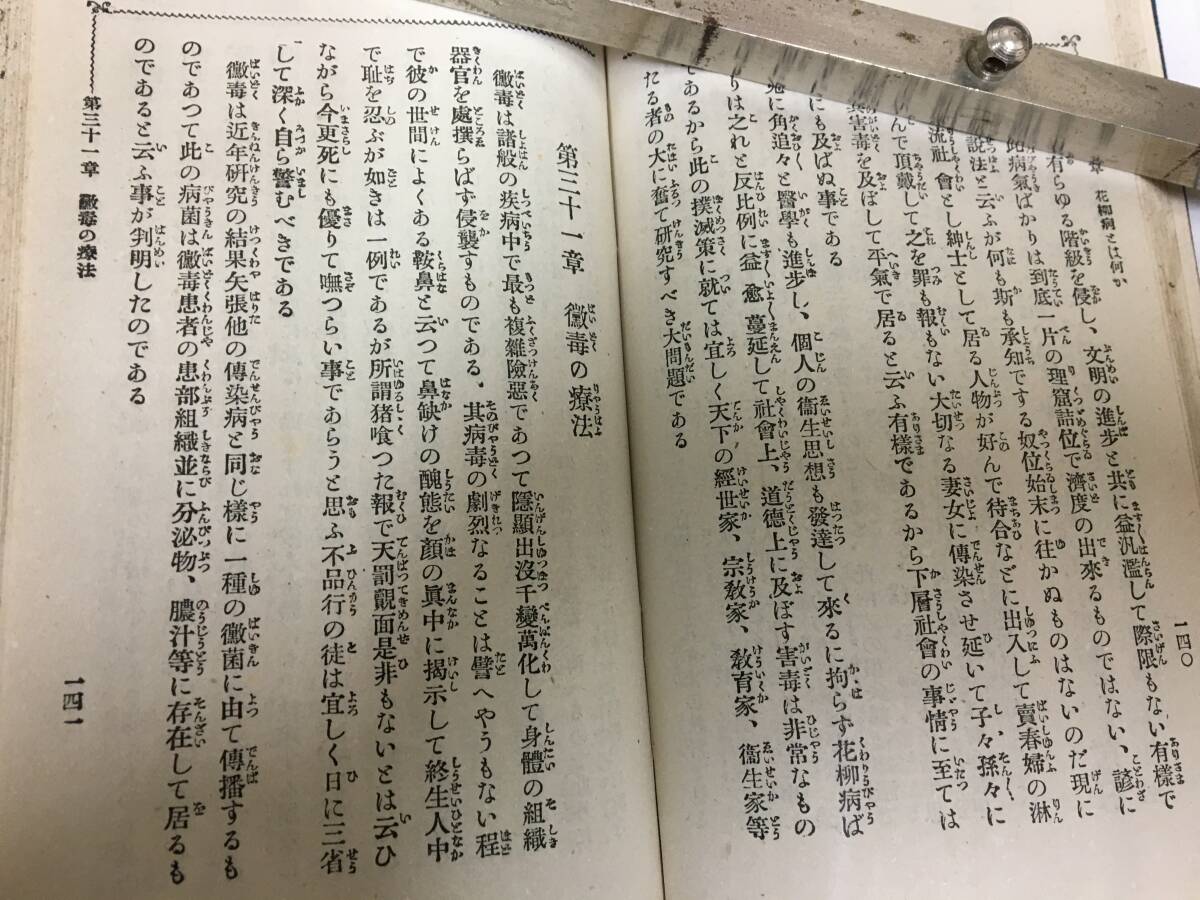 章 花柳病とは何か
一四〇
有らゆる階級を侵し、文明の進步と共に益汎濫して際限もない有樣で
此病氣ばかりは到底一片の理窟詰位で濟度の出來るものではない、諺に
說法と云ふが何も斯も承知でする奴位始末に往かぬものはないのだ現に
流社會とし紳士として居る人物が好んで待合などに出入して賣春婦の淋
んで頂戴して之を罪も報もない大切なる妻女に傳染させ延いて子々孫々に
害毒を及ぼして平氣で居ると云ふ有樣であるから下層社會の事情に至ては
にも及ばぬ事である
兎に角追々と醫學も進步し、個人の衞生思想も發達して來るに拘らず花柳病ば
りは之れと反比例に益愈蔓延して社會上、道德上に及ぼす害毒は非常なもの
であるから此の撲滅策に就ては宜しく天下の經世家、宗敎家、敎育家、衞生家等
たる者の大に奮て硏究すべき大問題である
第三十一章 黴毒の療法
黴毒は諸般の疾病中で最も複雜險惡であつて隱顯出沒千變萬化して身體の組織
器官を處撰らばず侵襲すものである、其病毒の劇烈なることは譬へやうもない程
で彼の世間によくある鞍鼻と云つて鼻缺けの醜態を顏の眞中に揭示して終生人中
で耻を忍ぶが如きは一例であるが所謂猪喰つた報で天罰覿面是非もないとは云ひ
ながら今更死にも優りて嘸つらい事であらうと思ふ不品行の徒は宜しく日に三省
して深く自ら警むべきである
黴毒は近年硏究の結果矢張他の傳染病と同じ樣に一種の黴菌に由て傳播するも
のであつて此の病菌は黴毒患者の患部組織並に分泌物、膿汁等に存在して居るも
のであると云ふ事が判明したのである
第三十一章 黴毒の療法
一四一